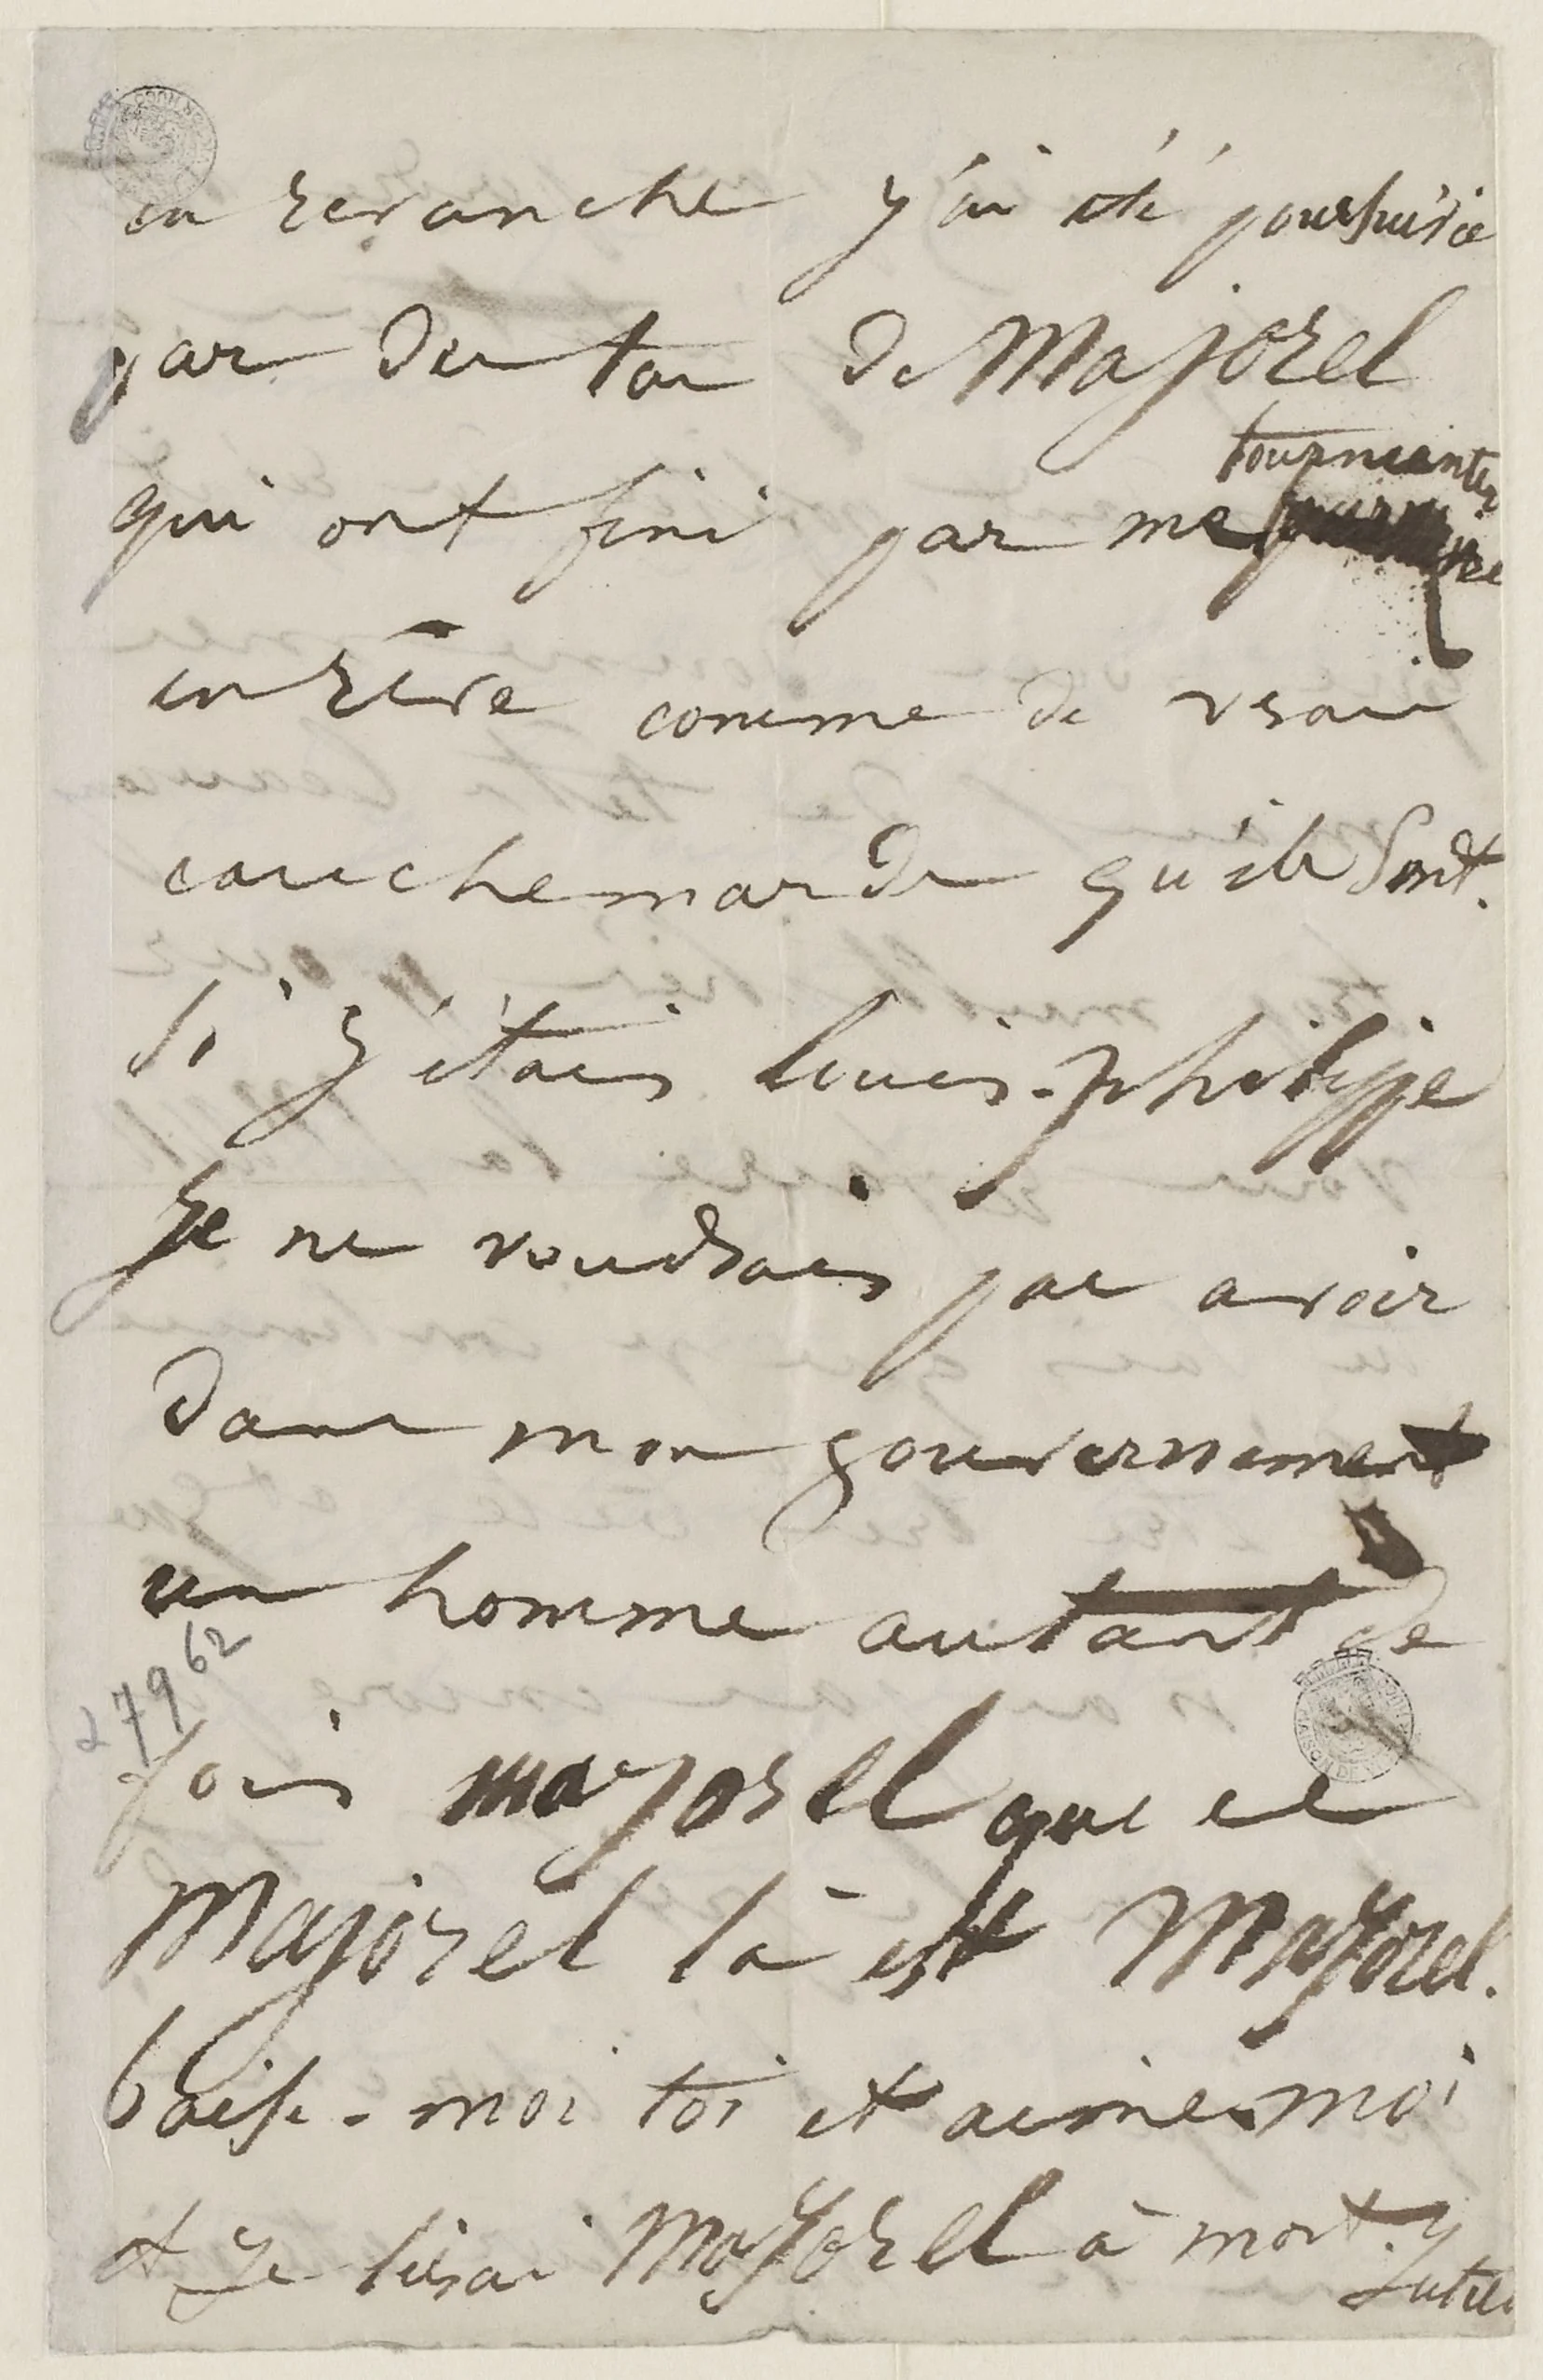 en revanche j'ai été poursuivie
par des tas de Majorel
tourmenter
qui ont fini par me
en rêve comme de vrais
cauchemards qu'ils sont.
Si j'étais Louis-Philippe
Je ne voudrais pas avoir
dans mon gouvernement
un homme autant de
27962
fois majorel que ce
Majorel là est Majorel.
baise-moi toi et aime-moi
et je lirai Majorel à mort.
Juliette